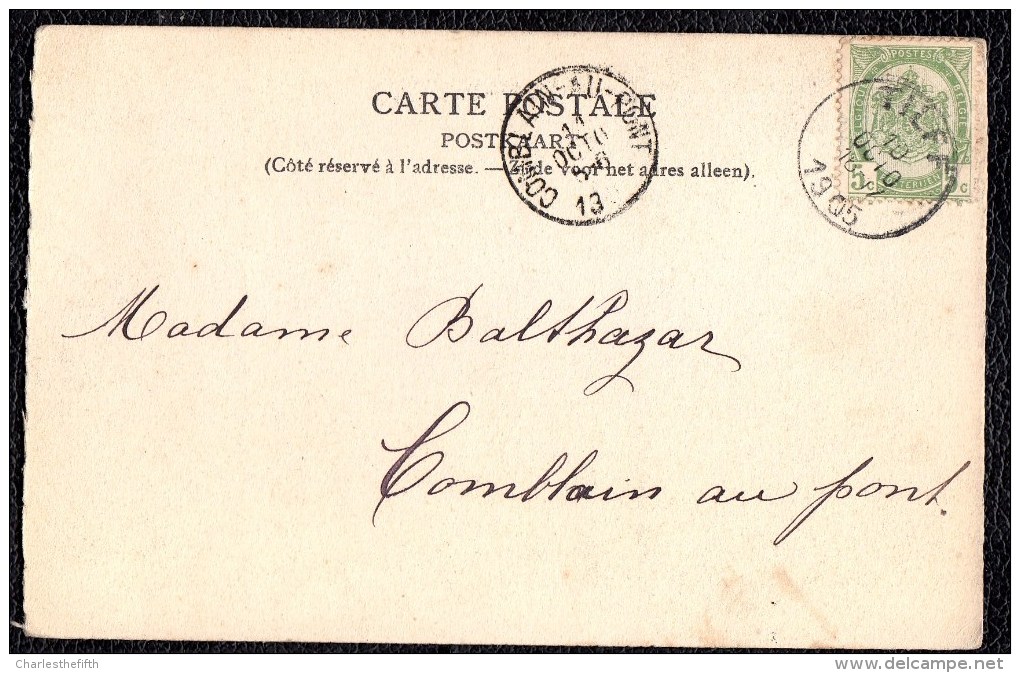 CARTE POSTALE
POSTKAART
(Côté réservé à l'adresse. — Zijde voor het adres alleen).
COMBLAIN-AU-PONT
11
OCTO
13
POSTES
TILFF
10
OCTO
1905
5
Madame Balthazar
Comblain au pont.
Charlesthefifth
www.delcampe.net